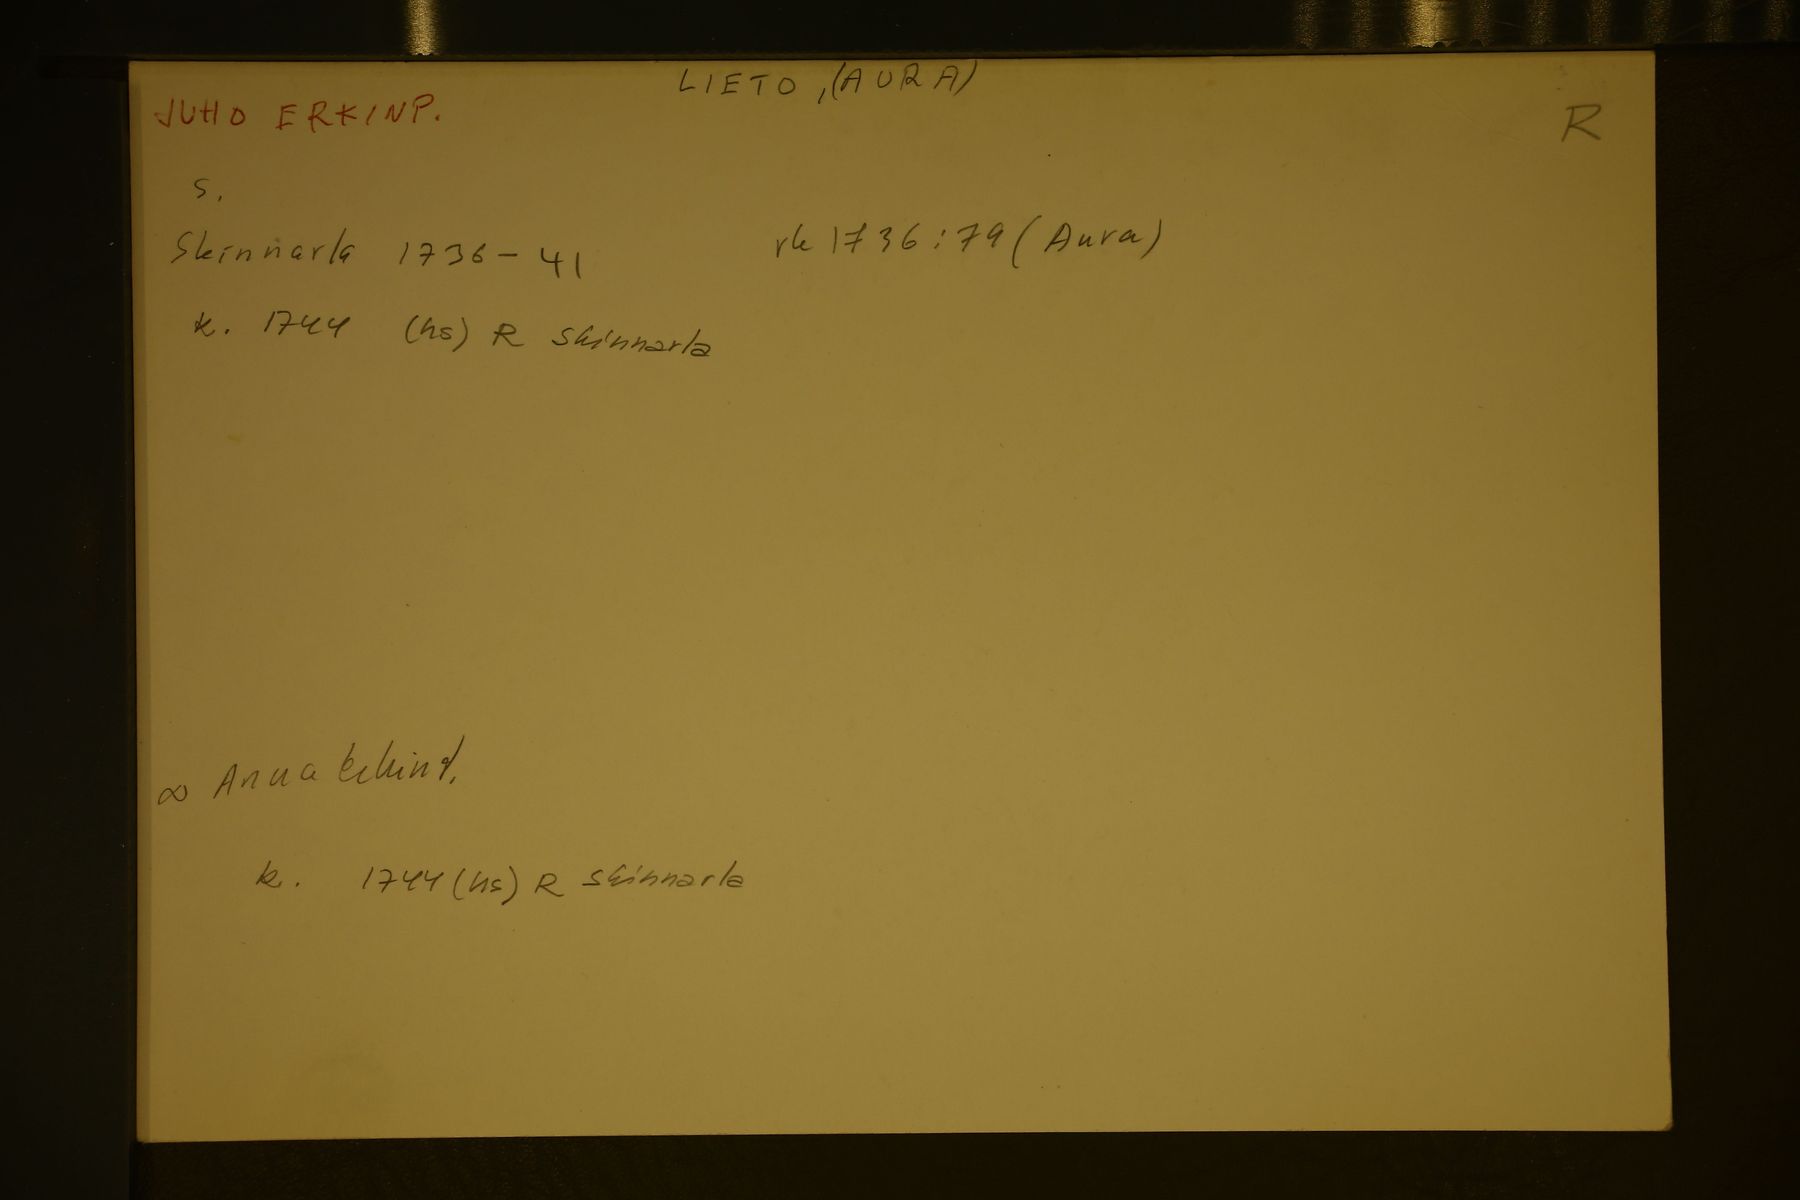 LIETO, (AURA)
JUHO ERKINP.
R
S.
Skinnarla 1736-41 rk 1736:79 (Aura)
k. 1744 (hs) R Skinnarla
∞ Anna
k. 1744 (hs) R Skinnarla